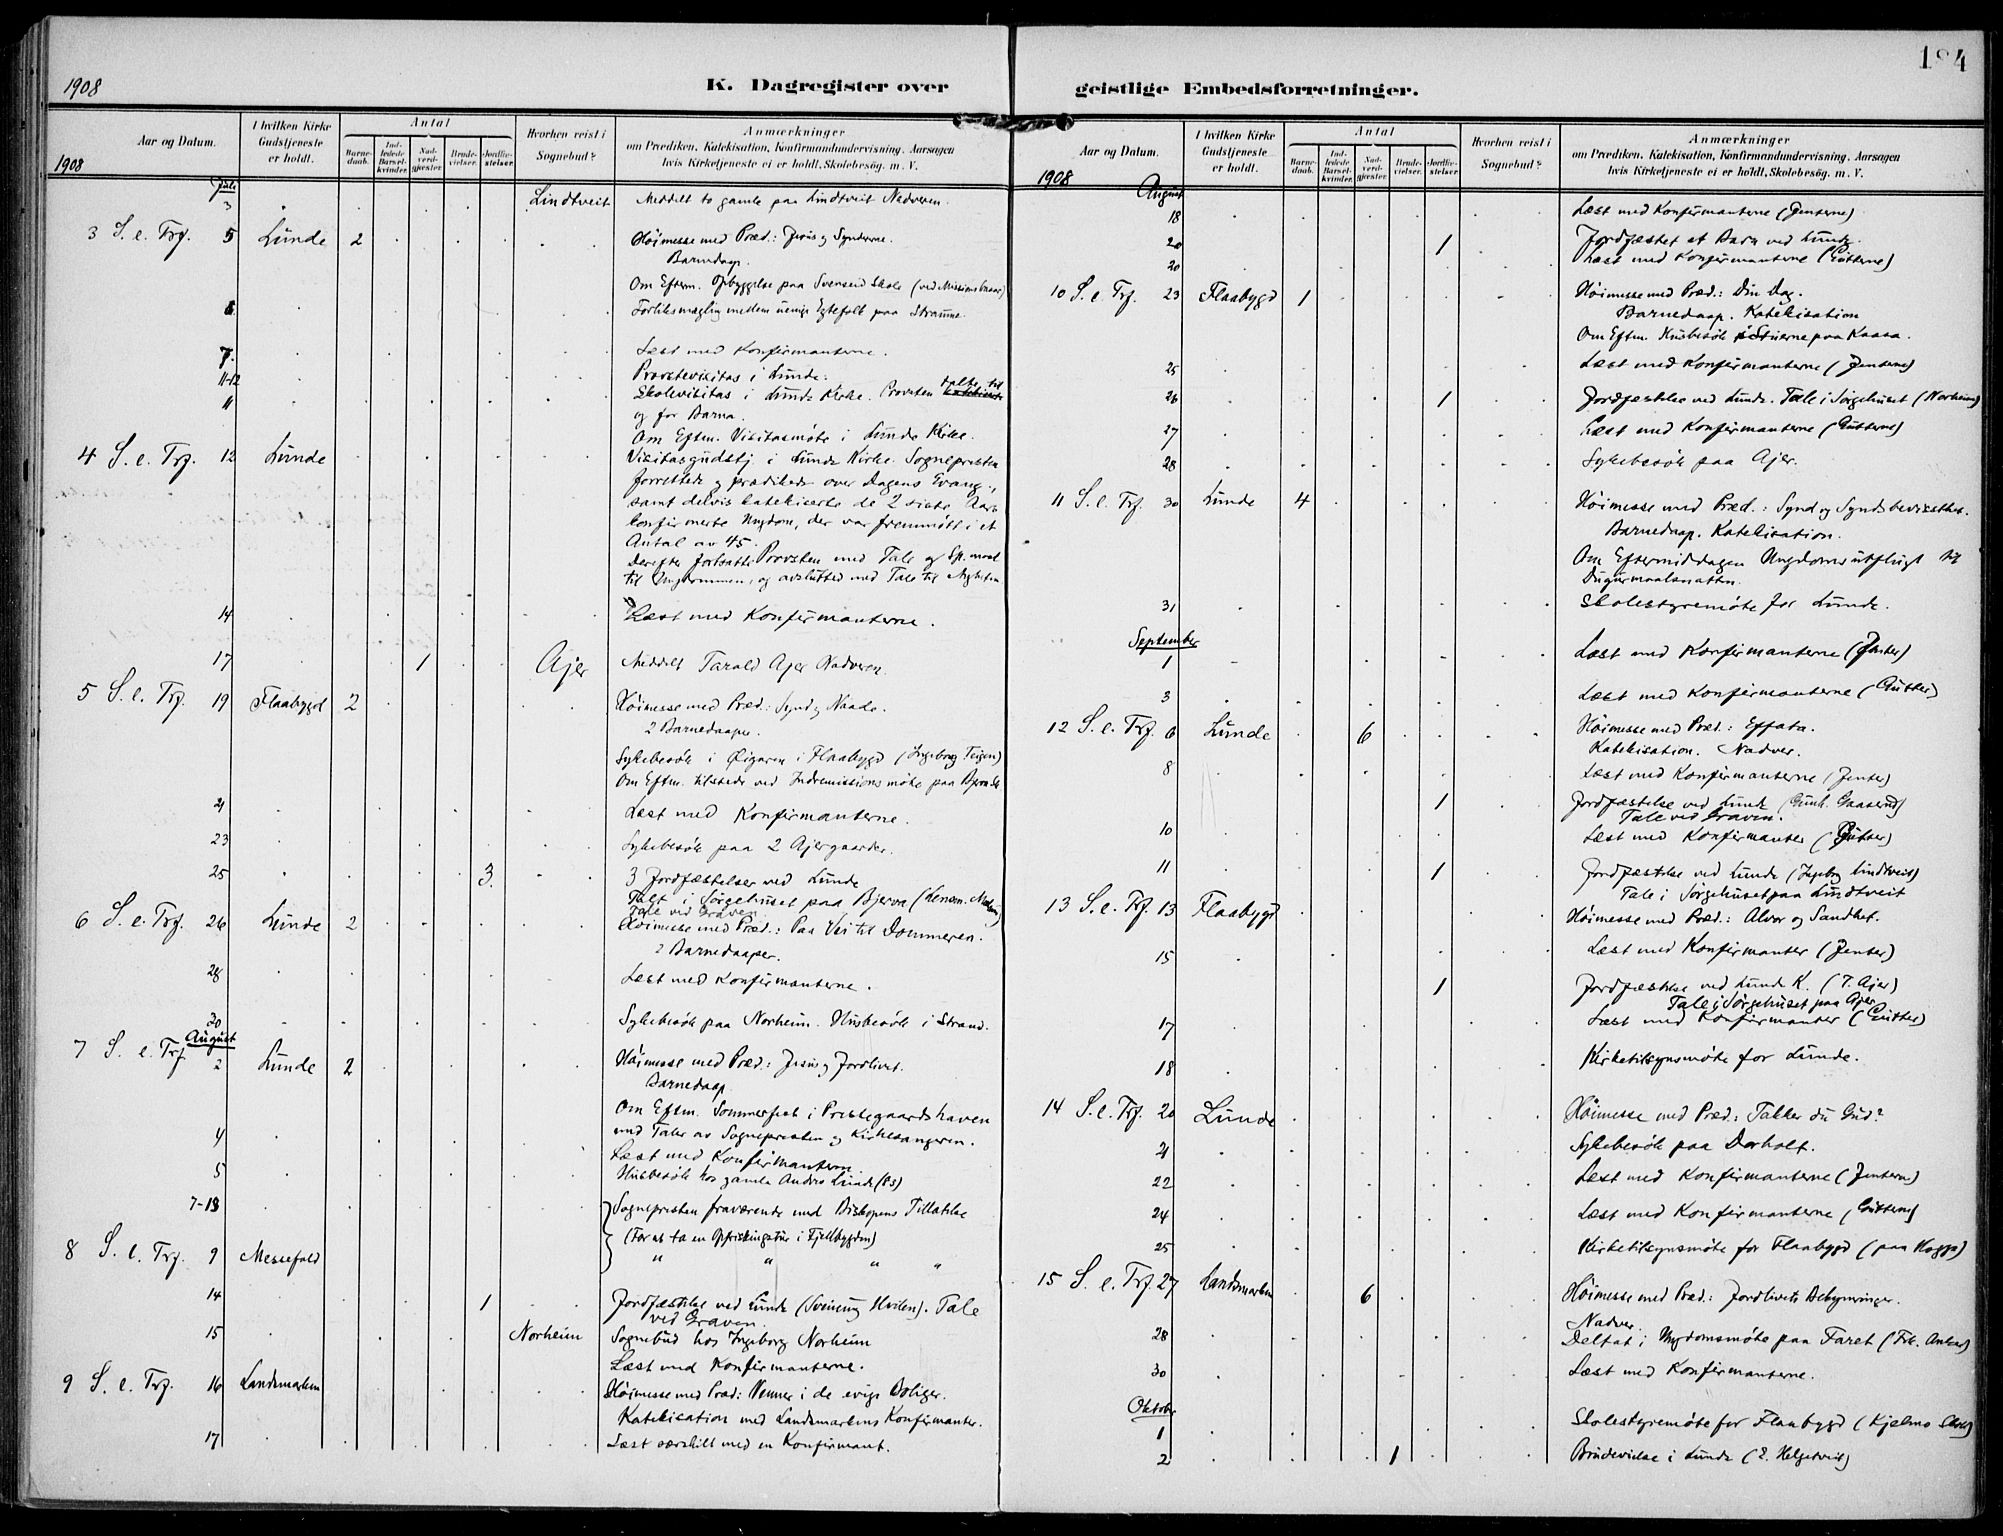 184
1908
K. Dagregister over
geistlige Embedsforretninger.
Aar og Datum.
I hvilken Kirke Gudstjeneste er holdt.
Antal
Barnedaab.
Indledede Barselkvinder.
Nadverdgjæster.
Brudevielser.
Jordfæstelser.
Hvorhen reist i Sognebud?
Anmærkninger
om Prædiken, Katekisation, Konfirmandundervisning, Aarsagen
hvis Kirketjeneste ei er holdt, Skolebesøg, m. V.
1908
Juli
3 Lindtveit Meddelt to gamle paa Lindtveit Nadveren.
3 S. e. Trf. 5 Lunde 2 Höimesse med Præd.: Jesus og Synderne.
Barnedaap.
Om Efterm. Opbyggelse paa Svenseid Skole (ved Missionsbasar)
6 Forliksmægling mellem uenige Egtefolk paa Stramme.
7. Læst med Konfirmanterne.
11-12 Provstevisitas i Lunde.
11 Skolevisitas i Lunde Kirke. Provsten talte til
og for Barna.
Om Eftm. Visitasmöte i Lunde Kirke.
4 S. e. Trf. 12 Lunde Visitasgudstj. i Lunde Kirke. Sognepresten
forrettede og prædikede over Dagens Evang.,
samt delvis katekiserte de 2 siste Aars
konfirmerte Ungdom, der var fremmött i et
Antal av 45.
Derefter fortsatte Provsten med Tale og Spmaal
til Ungdommen, og avslutted med Tale til Menigheten
14 Læst med Konfirmanterne.
17 1 Ajer Meddelt Tarald Ajer Nadveren.
5 S. e. Trf. 19 Flaabygd 2 Höimesse med Præd.: Synd og Naade.
2 Barnedaaper.
Sykebesök i Öigaren i Flaabygd (Ingeborg Teigen)
Om Eftm. tilstede ved Indremissionsmöte paa
21 Læst med Konfirmanterne.
23 Sykebesök paa 2 Ajergaarder.
25 3 3 Jordfæstelser ved Lunde
Talt i Sörgehuset paa Bjerva (Lensm.
Tale ved Graven
6 S. e. Trf. 26 Lunde 2 Höimesse med Præd.: Paa Vei til Dommeren.
2 Barnedaaper.
28 Læst med Konfirmanterne.
30 Sykebesök paa Norheim. Husbesök i Strand.
August
7 S. e. Trf 2 Lunde 2 Höimesse med Præd.: Jesus og Jordlivet.
Barnedaap
Om Eftm. Sommerfest i Prestegaardshaven
med Taler av Sognepresten og Kirkesangeren.
4 Læst med Konfirmanterne
5 Husbesök hos gamle Anders Lunde (83)
7-13 Sognepresten fraværende med Biskopens Tillatelse
(For at ta en Opfriskingstur i Fjellbygden)
8 S. e. Trf. 9 Messefald " " " "
14 1 Jordfæstelse ved Lunde (Sveinung Hvilen). Tale
ved Graven.
15 Norheim Sognebud hos Ingeborg Norheim
Læst med Konfirmanterne.
9 S. e. Trf. 16 Landsmarken Höimesse med Præd: Venner i de evige Boliger.
Katekisation med Landsmarkens Konfirmanter.
17 Læst særskilt med en Konfirmant.
Aar og Datum.
I hvilken Kirke Gudstjeneste er holdt.
Antal
Barnedaab.
Indledede Barselkvinder.
Nadverdgjæster.
Brudevielser.
Jordfæstelser.
Hvorhen reist i Sognebud?
Anmærkninger
om Prædiken, Katekisation, Konfirmandundervisning, Aarsagen
hvis Kirketjeneste ei er holdt, Skolebesøg, m. V.
1908
August
18 Læst med Konfirmanterne (Jenterne)
20 1 Jordfæstet et Barn ved Lunde.
20 Læst med Konfirmanterne (Gutterne)
10 S. e. Trf. 23 Flaabygd 1 Höimesse med Præd.: Din Dag.
Barnedaap. Katekisation
Om Eftm. Husbesök i Stuerne paa Kaasa.
25 Læst med Konfirmanterne (Jenterne)
26 1 Jordfæstelse ved Lunde. Tale i Sörgehuset (Norheim)
27 Læst med Konfirmanterne (Gutterne)
28 Sykebesök paa Ajer.
11 S. e. Trf. 30 Lunde 4 Höimesse med Præd.: Synd og Syndsbevissthet.
Barnedaap. Katekisation.
Om Eftermiddagen Ungdomsutflugt til
Dugurmaalsnatten.
31 Skolestyremöte for Lunde.
September
1 Læst med Konfirmanterne (Jenter)
3 Læst med Konfirmanterne (Gutter)
12 S. e. Trf. 6 Lunde 6 Höimesse med Præd.: Effata.
Katekisation. Nadver.
8 Læst med Konfirmanterne (Jenter)
1 Jordfæstelse ved Lunde (Gunh. Gaaserud)
Tale ved Graven.
10 Læst med Konfirmanter (Gutter)
11 1 Jordfæstelse ved Lunde (Ingebg Lindtveit)
Tale i Sörgehuset paa Lindtveit
13 S. e. Trf 13 Flaabygd Höimesse med Præd.: Alvor og Sandhet.
15 Læst med Konfirmanter (Jenter)
1 Jordfæstelse ved Lunde K. (T. Ajer)
Tale i Sörgehuset paa Ajer
17 Læst med Konfirmanter (Gutter)
18 Kirketilsynsmöte for Lunde.
14 S. e. Trf. 20 Lunde Höimesse med Præd: Takker du Gud?
21 Sykebesök paa Dorholt.
22 Læst med Konfirmanterne (Jenterne)
24 Læst med Konfirmanterne (Gutterne)
25 Kirketilsynsmöte for Flaabygd (paa Hogga)
15 S. e. Trf. 27 Landsmarken 6 Höimesse med Præd.: Jordlivets Bekymringer.
Nadver.
28 Deltat i Ungdomsmöte paa Faret
30 Læst med Konfirmanterne.
Oktober
1 Skolestyremöte for Flaabygd (Kjelmo Skole)
2 1 Brudevielse i Lunde (E. Helgetveit)